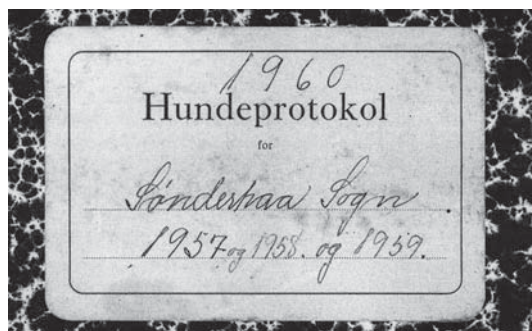 1960
Hundeprotokol
for
Sønderhaa Sogn.
1957 og 1958. og 1959.